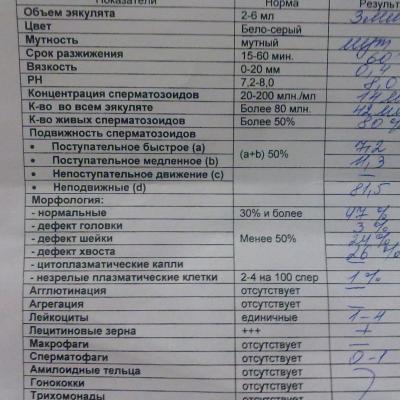 Показатели Норма Результ
Объем эякулята 2-6 мл 3мл
Цвет Бело-серый
Мутность мутный мут
Срок разжижения 15-60 мин. 60
Вязкость 0-20 мм 0,4
PH 7,2-8,0 8,0
Концентрация сперматозоидов 20-200 млн./мл 14
К-во во всем эякуляте Более 80 млн. 42
К-во живых сперматозоидов Более 50% 80 %
Подвижность сперматозоидов
• Поступательное быстрое (a) (a+b) 50% 7,2
• Поступательное медленное (b) 11,3
• Непоступательное движение (c) —
• Неподвижные (d) 81,5
Морфология:
- нормальные 30% и более 47 %
- дефект головки Менее 50% 3 %
- дефект шейки 24 %
- дефект хвоста 26 %
- цитоплазматические капли —
- незрелые плазматические клетки 2-4 на 100 спер 1 %
Агглютинация отсутствует —
Агрегация отсутствует —
Лейкоциты единичные 1-4
Лецитиновые зерна +++ +
Макрофаги отсутствует —
Сперматофаги отсутствует 0-1
Амилоидные тельца отсутствует
Гонококки отсутствует
Трихомонады отсутствует